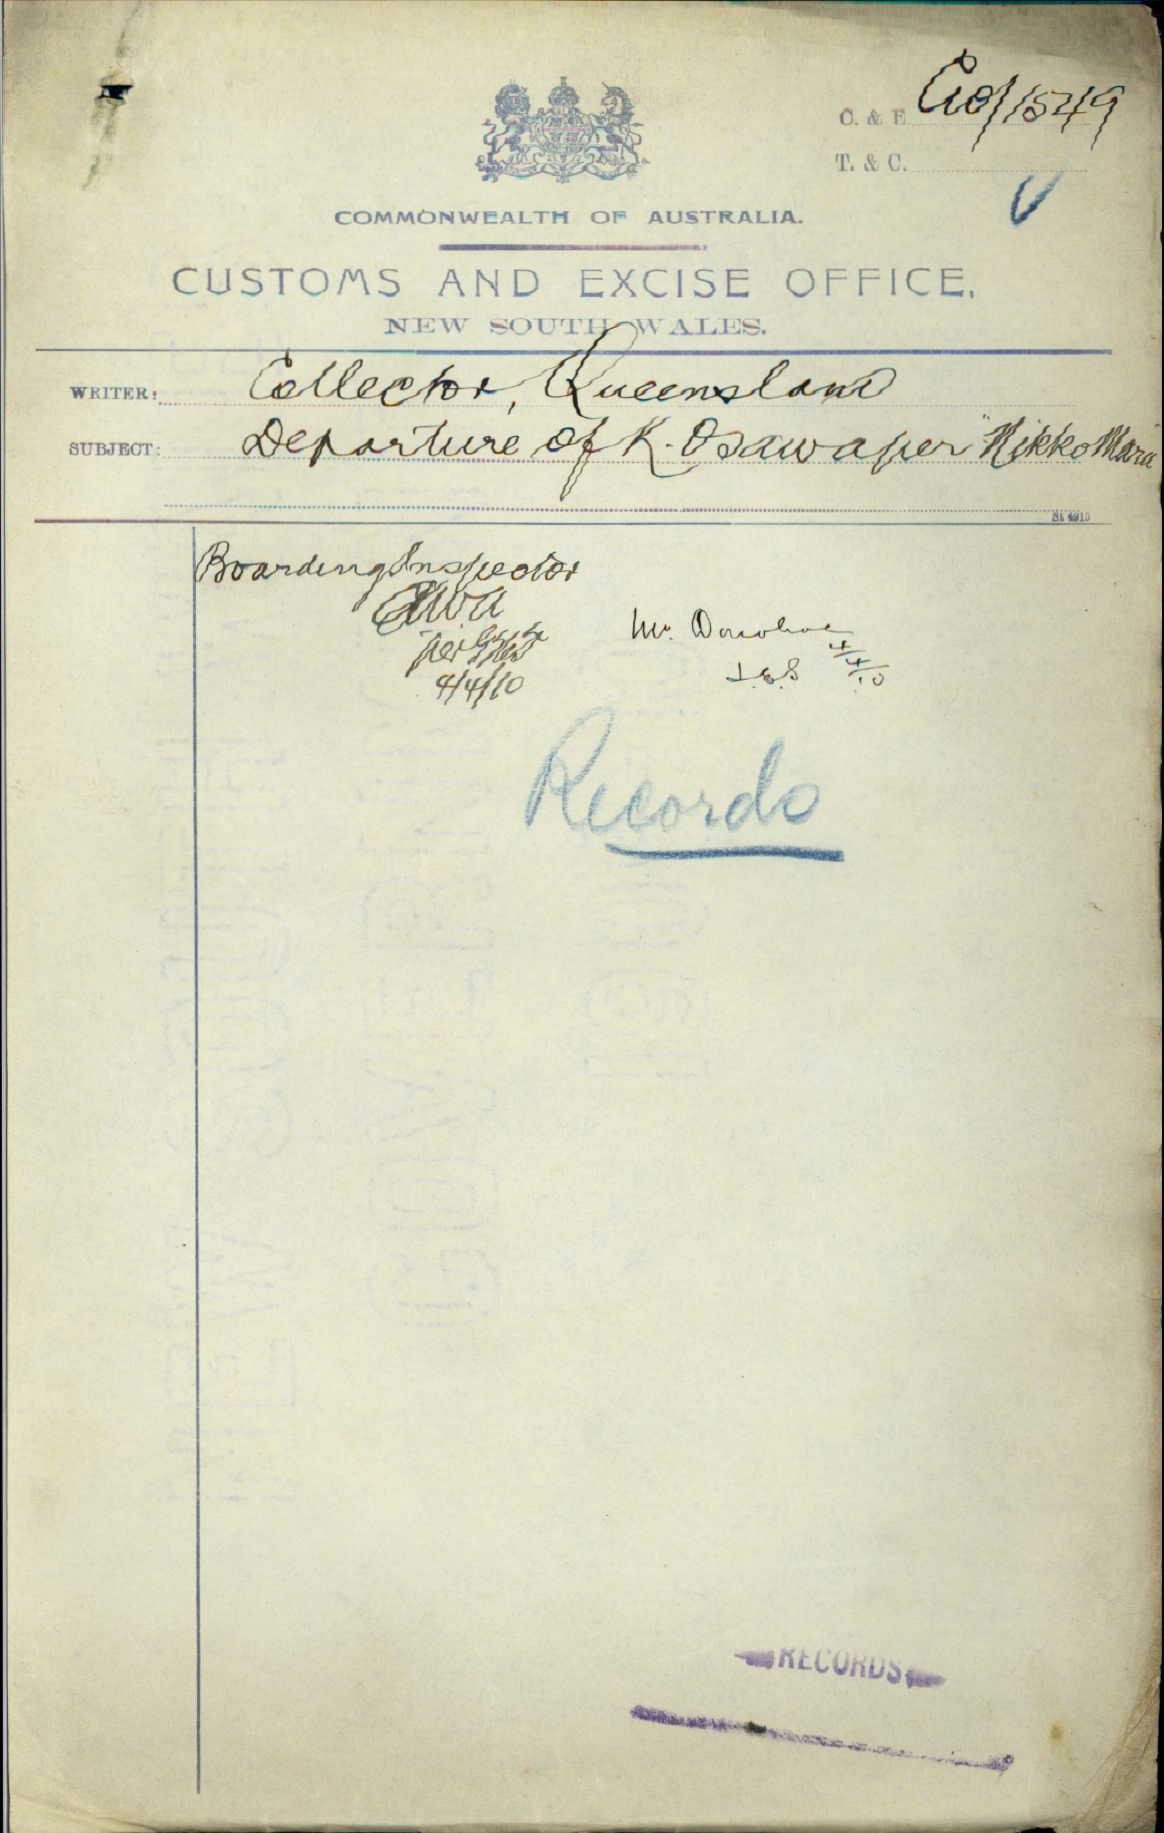 C. & E. C10/1549
T. & C.
COMMONWEALTH OF AUSTRALIA.
CUSTOMS AND EXCISE OFFICE,
NEW SOUTH WALES.
WRITER: Collector, Queensland
SUBJECT: Departure of K. Osawa per "Nikko Maru
St. 4910
Boarding Inspector
per
4/4/10
Mr. Donohoe
4/4/10
Records
RECORDS